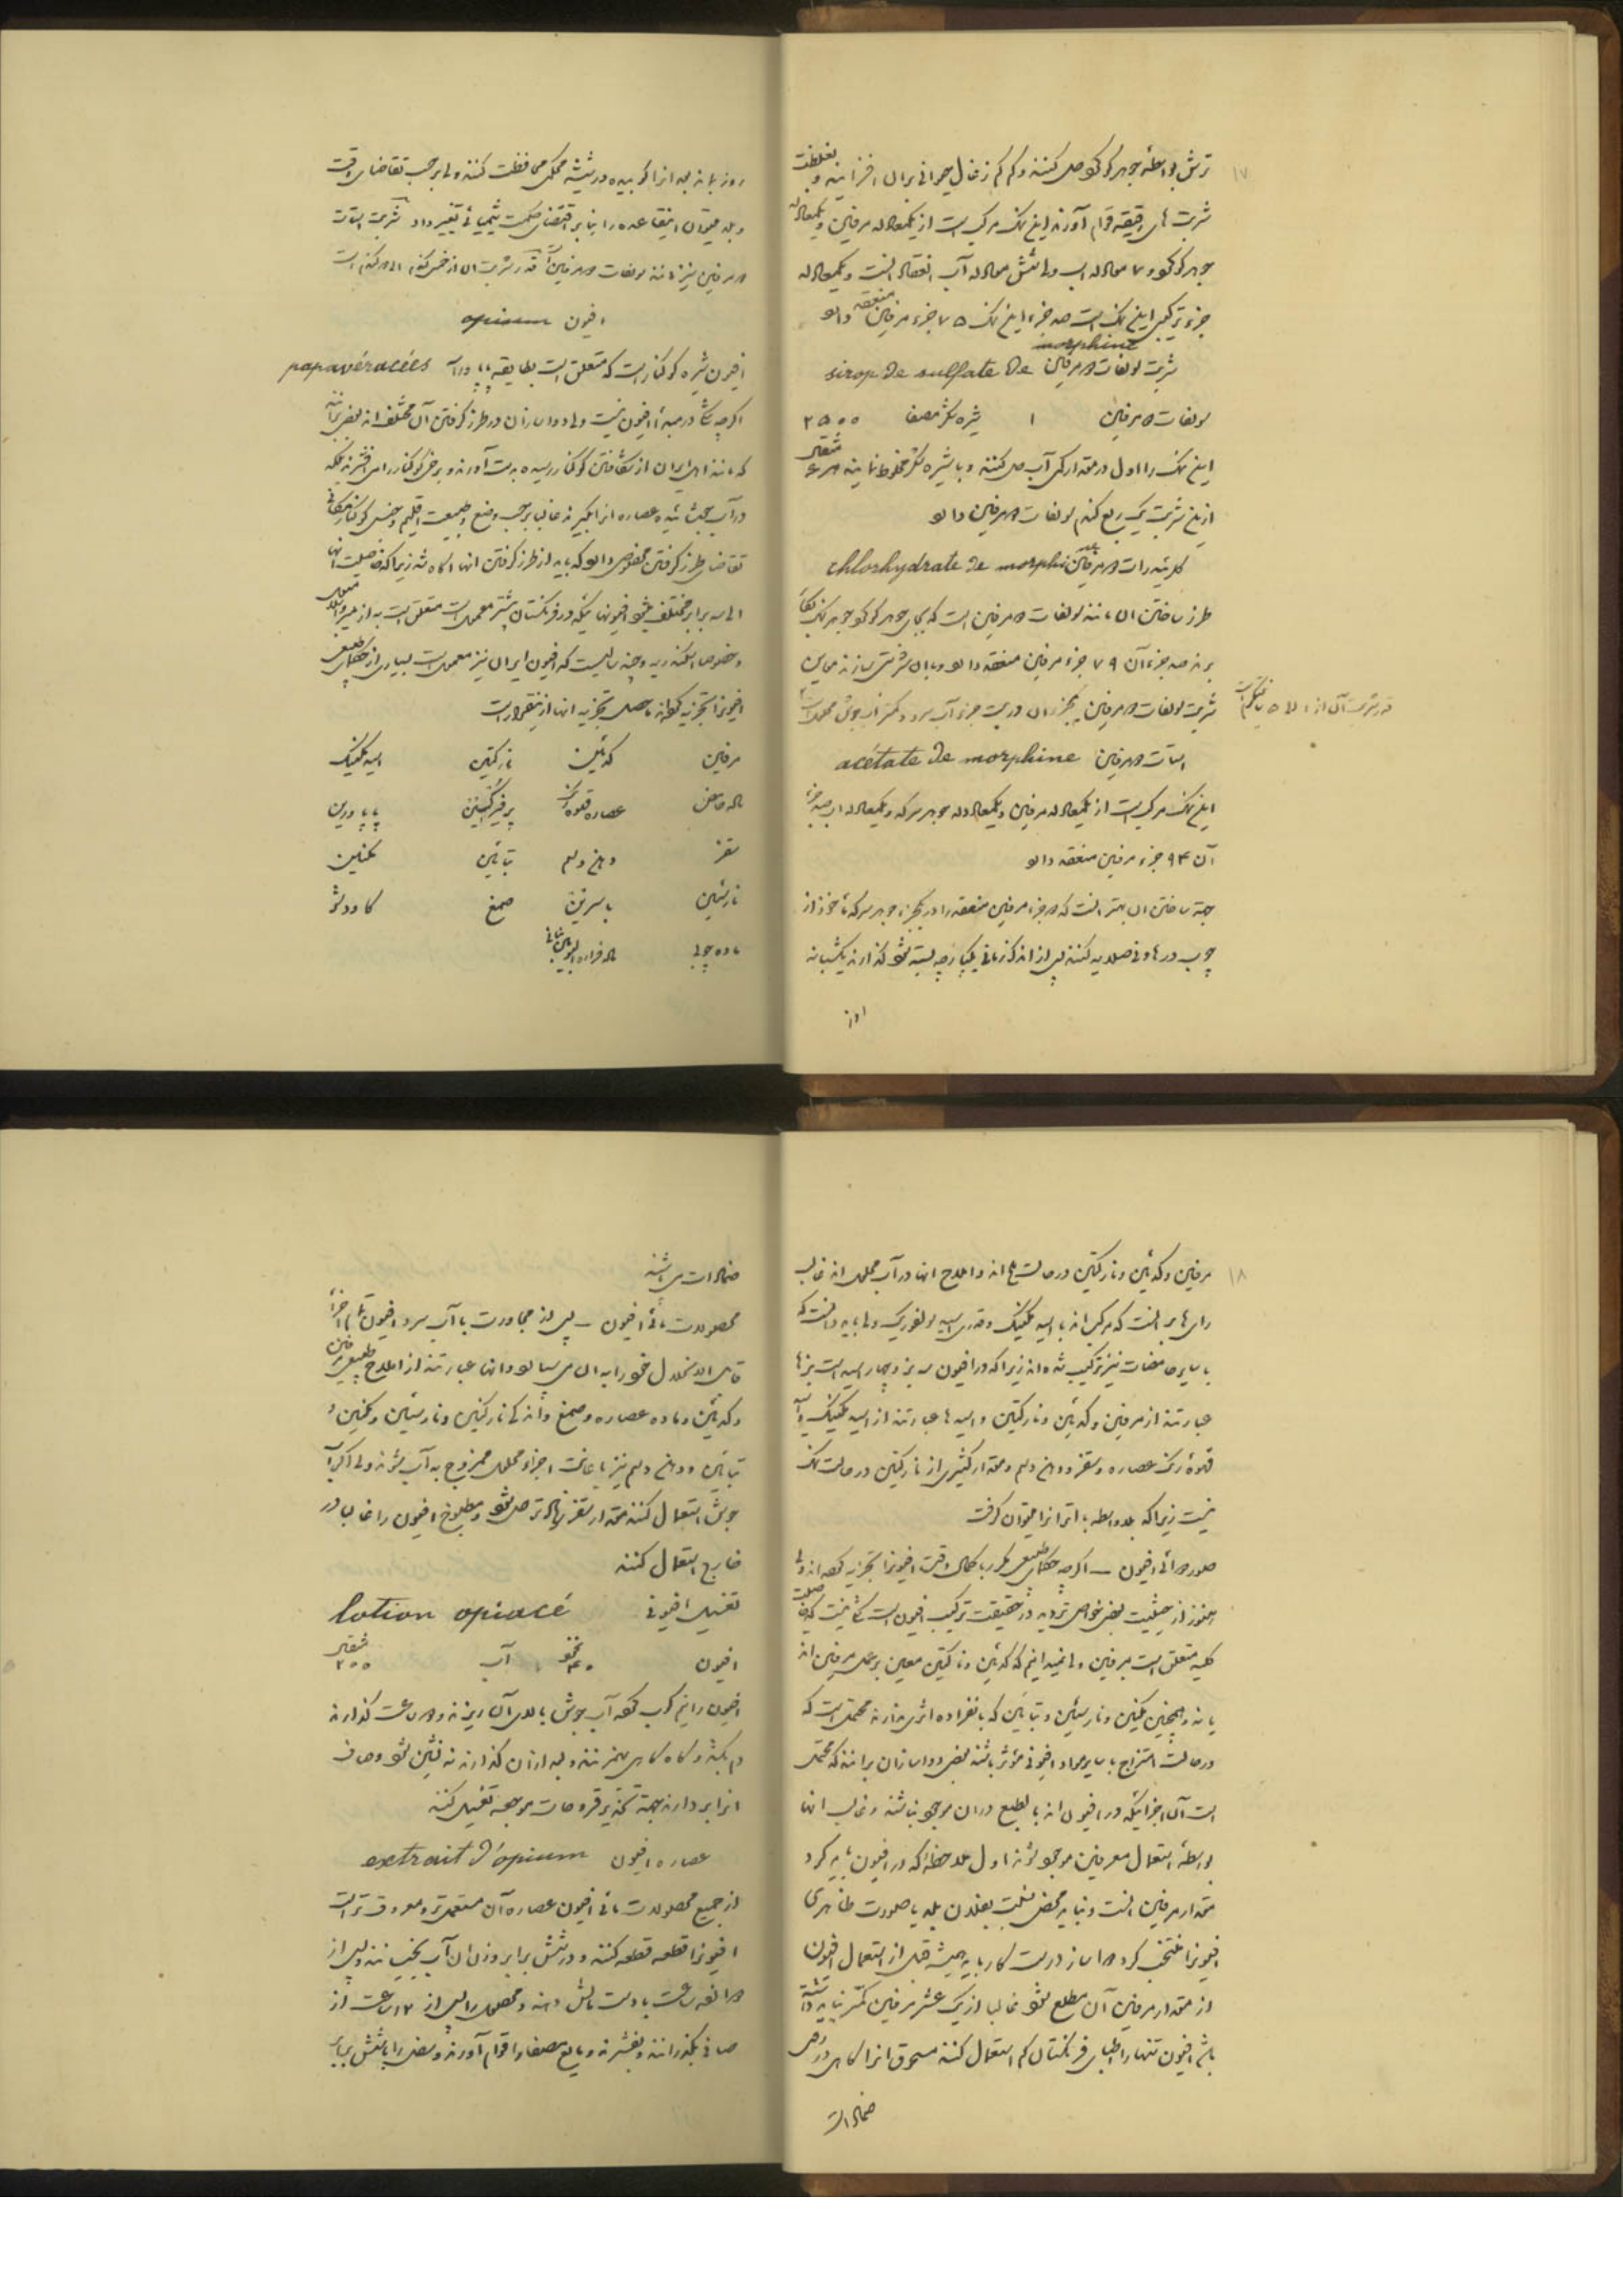 ۱۷
ترش بواسطه جوهر گوگرد حل کنند و کم کم زغال حیوانی بران افزایند و بغلظت
شربت های رقیقه قوام آورند این نمک مرکب است از یکمعادله مرفین و یکمعادله
جوهر گوگرد و ۷ معادله آب ولی شش معادله آب انعقاد است و یکمعادله
جزء ترکیبی این نمک است صد جزء این نمک ۷۵ جزء مرفین منعقد دارد
شربت سولفات دمرفین sirop de sulfate de morphine
سولفات دمرفین ۱ شیره شکر مصفا ۲۵۰۰
این نمک را اول در مقدار کمی آب حل کنند و با شیره شکر مخلوط نمایند هر ۴ مثقال
ازین شربت یک ربع گندم سولفات دمرفین دارد
کلریدرات دمرفین chlorhydrate de morphine
طرز ساختن ان مانند سولفات دمرفین است که بجای جوهر گوگرد جوهر نمک بکار
برند صد جزء آن ۷۹ جزء مرفین منعقد دارد و بان شربتی سازند مماثل
شربت سولفات دمرفین یکجزء ان در بیست جزء آب سرد و کمتر از آب جوش محلول است
قدر شربت آن از ۱ الی ۵
استات دمرفین acétate de morphine
این نمک مرکب است از یکمعادله مرفین و یکمعادله جوهر سرکه و یکمعادله آب صد جزء
آن ۹۴ جزء مرفین منعقد دارد
جهة ساختن ان بهتر انست که جزء مرفین منعقد را در یکجزء جوهر سرکه مأخوذ از
چوب در هاونی صلایه کنند پس از اندک زمانی یکپارچه بسته شود گذارند یکشبانه
روز بماند بعد انرا کوبیده در شیشه محکمی محافظت کنند ولی بر حسب تقاضای وقت
و بلد میتوان اینقاعده را بنا بر اقتضای حکمت شیمیائی تغییر داد شربت استات
دمرفین نیز مانند سولفات دمرفین است قدر شربت ان از خمس گندم الی دو گندم است
افیون opium
افیون شیره کوکنار است که متعلق است بطایفه پاپاوراسه papavéracées
اگرچه شکی در مبدأ افیون نیست ولی دواسازان در طرز گرفتن آن مختلف اند بعضی برآنند
که مانند اهل ایران از شکافتن کوکنار رسیده بدست آورند و برخی کوکنار را می افشرند بلکه
در آب جوشانیده عصاره انرا بگیرند غالبا بر حسب وضع و طبیعت اقلیم و جنس کوکنار مکانی
تقاضای طرز گرفتن مخصوصی دارد که باید از طرز گرفتن انها آگاه شد زیرا که خاصیت آنها
الی سه برابر مختلف میشود افیونهائیکه در فرنگستان بیشتر معمول است متعلق است به ازمیر و اسلامبول
و خصوصا اسکندریه و چند سالیست که افیون ایران نیز معمول است بسیاری از حکمای طبیعی
افیونرا تجزیه کرده اند حاصل تجزیه انها ازینقرار است
مرفین کدئین نارکتین اسید مکنیک
ماده حامض عصاره قهوه رنگ پرفیرکسین پاپاورین
سقز دهن دسم تبائین مکنین
نارسئین باسرین صمغ کااوچو
ماده چوبی ماده فراره
۱۸
مرفین و کدئین و نارکتین در حالت ملح اند و املاح انها در آب محلول اند غالب
رای ها بر انست که مرکب اند با اسید مکنیک و قدری اسید سولفوریک ولی باید دانست که
با سایر حامضات نیز ترکیب شده اند زیرا که در افیون سه بز و چهار اسید است بزها
عبارتند از مرفین و کدئین و نارکتین و اسیدها عبارتند از اسید مکنیک و اسید
قهوه رنگ عصاره و سقز و دهن دسم و مقدار کثیری از نارکتین در حالت نمک
نیست زیرا که بلاواسطه با اتر انرا میتوان گرفت
صور دوائی افیون ــ اگرچه حکمای طبیعی مکرر با کمال دقت افیونرا تجزیه کرده اند ولی
هنوز از حیثیت بعضی خواص تردید در حقیقت ترکیب افیون است شکی نیست که خاصیت
کلیه متعلق است بمرفین ولی نمیدانیم که کدئین و نارکتین معین بر عمل مرفین اند
یا نه و همچنین مکنین و نارسئین و تبائین که بانفراده اثری ندارند محتمل است که
در حالت امتزاج با سایر مواد افیونی مؤثر باشند بعضی دواسازان برانند که محتمل
است آن اجزائیکه در افیون اند بالطبع دران موجود نباشند و غالب انها
بواسطه استعمال معرفین موجود شوند اول ملاحظه که در افیون باید کرد
مقدار مرفین است و نباید محض نسبت بفلان بلد یا صورت ظاهری
افیونرا منتخب کرد دواساز درست کار باید همیشه قبل از استعمال افیون
از مقدار مرفین آن مطلع شود غالبا از یک عشر مرفین کمتر نباید داشته
باشد افیون تنها را اطبای فرنگستان کم استعمال کنند مسحوق انرا گاهی در روی
ضمادات
ضمادات می پاشند
محصولات مائی افیون ــ پس از مجاورت با آب سرد افیون تمام اجزاء
قابل الانحلال خود را به ان می سپارد و انها عبارتند از املاح طبیعی مرفین
و کدئین و ماده عصاره و صمغ و اندکی نارکتین و نارسئین و مکنین و
تبائین و دهن دسم نیز باعانت اجزاء محلول ممزوج به آب شوند ولی اگر آب
جوش استعمال کنند مقدار سقز زیادتر حل شود و مطبوخ افیون را غالبا در
خارج استعمال کنند
تغسیل افیونی lotion opiacé
افیون ۴۰ نخود آب ۲۰۰ مثقال
افیون را نیم کوب کرده آب جوش بالای آن ریزند و دو ساعت گذارند
دم بکشد و گاه گاهی بهم زنند و بعد ازان گذارند ته نشین شود و صاف
انرا بردارند جهة تخدیر قروحات موجعه تغسیل کنند
عصاره افیون extrait d'opium
از جمیع محصولات مائی افیون عصاره آن مستعمل تر و معروف تر است
افیونرا قطعه قطعه کنند و در شش برابر وزن ان آب بخیسانند و پس از
دوازده ساعت با دست مالش دهند و محصول را پس از ۱۲ ساعت از
صافی بگذرانند و بفشرند و مایع مصفا را قوام آورند و بعضی را با شش برابر